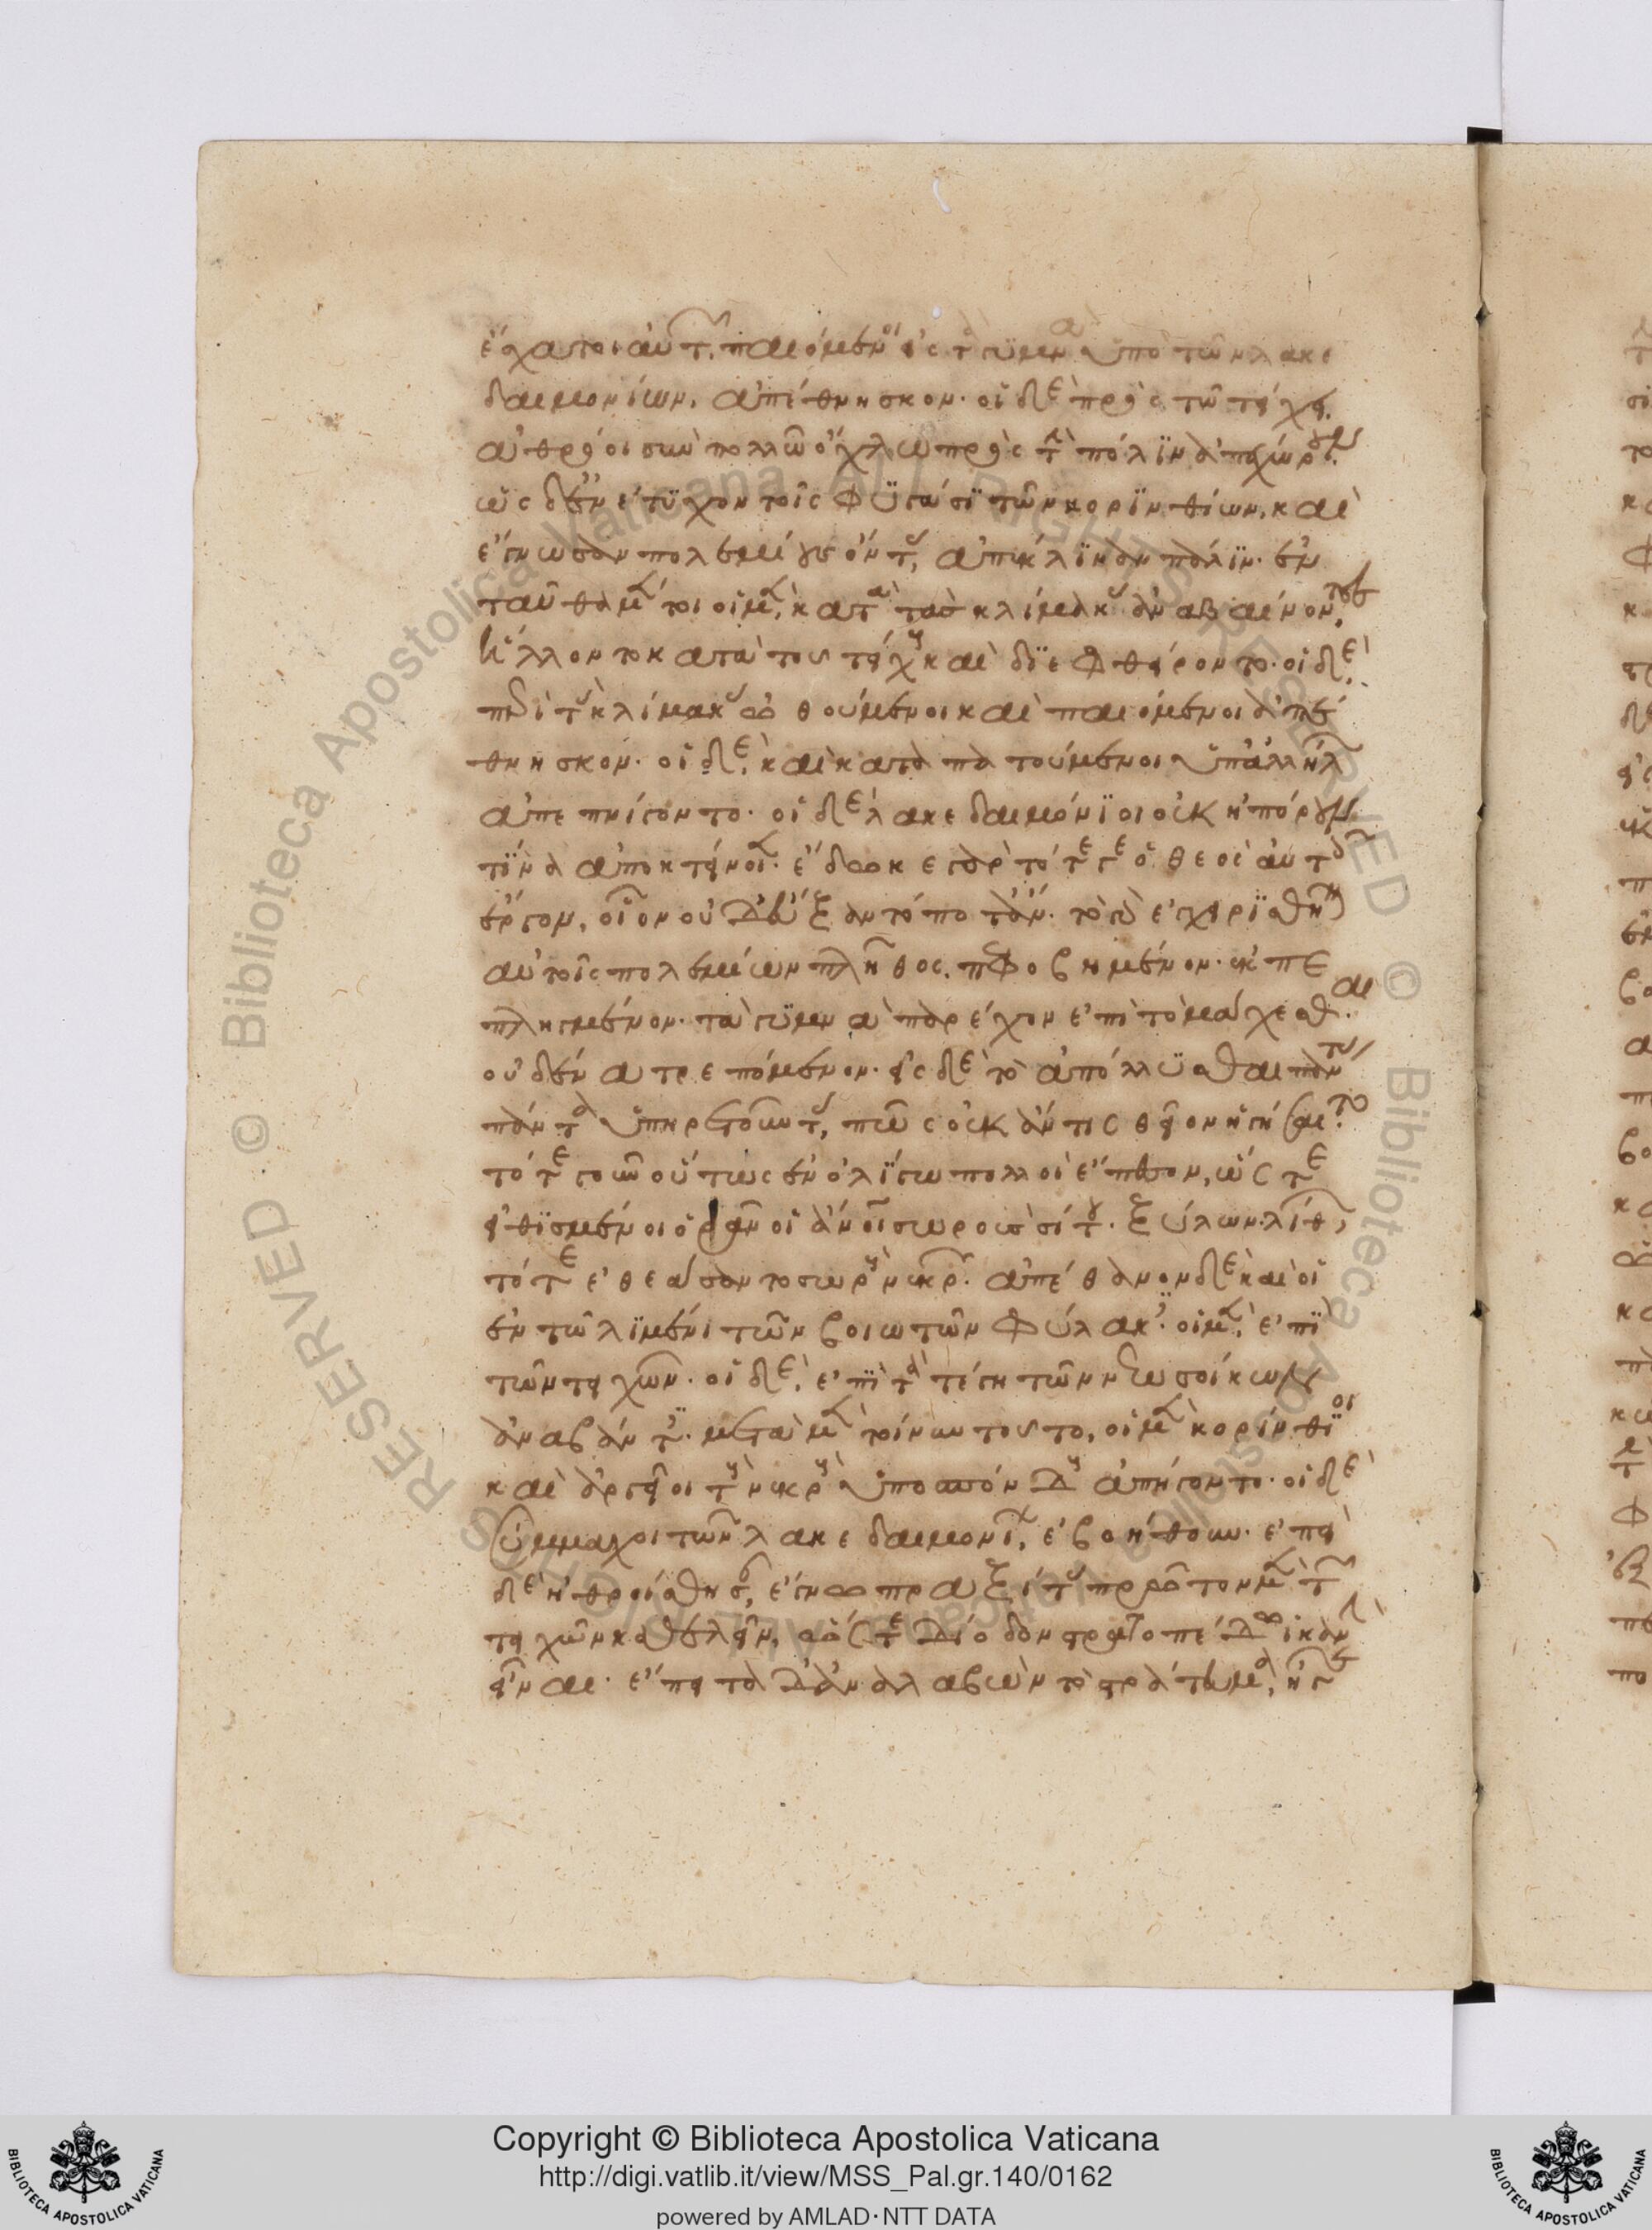 ἔσχατοι αὐτῶν. παιόμενοι εἰς τὰ γυμνὰ ὑπὸ τῶν λακε
δαιμονίων, ἀπέθνησκον· οἱ δὲ πρὸς τῷ τείχει.
ἁθρόοι σὺν πολλῷ ὄχλῳ πρὸς τὴν πόλιν ἀπεχώρουν.
ὡς δ' ἐνέτυχον τοῖς φυγάσι τῶν κορινθίων, καὶ
ἔγνωσαν πολεμίους ὄντας, ἀπέκλιναν πάλιν· ἐν
ταῦθα μέντοι οἱ μὲν, κατὰ τὰς κλίμακας ἀναβαίνοντες,
ἥλλοντο κατὰ τοῦ τείχους καὶ διεφθείροντο· οἱ δὲ,
περὶ τὰς κλίμακας ὠθούμενοι καὶ παιόμενοι ἀπέ
θνησκον· οἱ δὲ, καὶ καταπατούμενοι ὑπ' ἀλλήλων
ἀπεπνίγοντο· οἱ δὲ λακεδαιμόνιοι οὐκ ἠπόρουν
τίνα ἀποκτείνοιεν· ἔδωκε γὰρ τότε γε ὁ θεὸς αὐτοῖς
ἔργον, οἷον οὐδ' ηὔξαντό ποτ' ἄν· τὸ γὰρ ἐγχειρισθῆναι
αὐτοῖς πολεμίων πλῆθος. πεφοβημένον· ἐκπε
πληγμένον· τὰ γυμνὰ παρέχον ἐπὶ τὸ μάχεσθαι.
οὐδένα τρεπόμενον· εἰς δὲ τὸ ἀπόλλυσθαι πάντας
πάντα ὑπηρετοῦντας, πῶς οὐκ ἄν τις θεῖον ἡγήσαιτο.
τότε γοῦν οὕτως ἐν ὀλίγῳ πολλοὶ ἔπεσον, ὥστε
εἰθισμένοι ὁρᾶν οἱ ἄνοι σωροὺς σίτου. ξύλων. λίθων,
τότε ἐθεάσαντο σωροὺς νεκρῶν. ἀπέθανον δὲ καὶ οἱ
ἐν τῷ λιμένι τῶν βοιωτῶν φύλακες. οἱ μὲν, ἐπὶ
τῶν τειχῶν· οἱ δὲ, ἐπὶ τὰ τέγη τῶν νεωσοίκων
ἀναβάντες. μετὰ μὲν τοίνυν τοῦτο, οἱ μὲν κορίνθιοι
καὶ ἀργεῖοι τοὺς νεκροὺς ὑποσπόνδους ἀπήγοντο· οἱ δὲ
σύμμαχοι τῶν λακεδαιμονίων, ἐβοήθουν· ἐπεὶ
δὲ ἠθροίσθησαν, ἔγνω πραξίτας πρῶτον μὲν τῶν
τειχῶν καθελεῖν, ὥστε δίοδον στρατοπέδῳ ἱκανὴν
εἶναι· ἔπειτα δ' ἀναλαβὼν τὸ στράτευμα, ἦγε
Copyright © Biblioteca Apostolica Vaticana
http://digi.vatlib.it/view/MSS_Pal.gr.140/0162
powered by AMLAD·NTT DATA